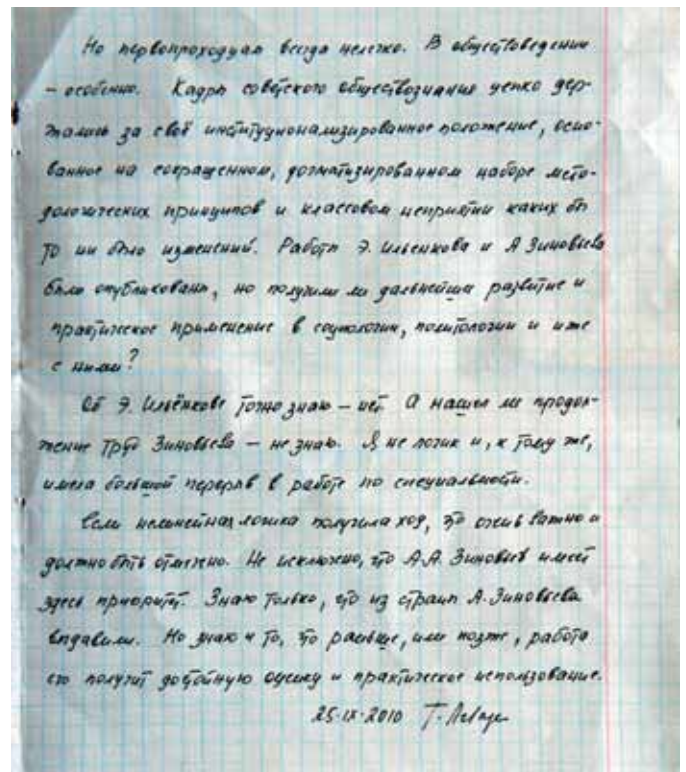 Но первопроходцам всегда нелегко. В обществоведении
– особенно. Кадры советского обществознания цепко дер-
жались за своё институционализированное положение, осно-
ванное на сокращенном, догматизированном наборе мето-
дологических принципов и классовом неприятии каких бы
то ни было изменений. Работы Э. Ильенкова и А Зиновьева
были опубликованы, но получили ли дальнейшее развитие и
практическое применение в социологии, политологии и иже
с ними?
Об Э. Ильёнкове точно знаю – нет. А нашёл ли продол-
жение труд Зиновьева – не знаю. Я не логик и, к тому же,
имела большой перерыв в работе по специальности.
Если нелинейная логика получила ход, то очень важно и
должно быть отмечено. Не исключено, что А.А. Зиновьев имеет
здесь приоритет. Знаю только, что из страны А. Зиновьева
выдавили. Но знаю и то, что раньше, или позже, работа
его получит достойную оценку и практическое использование.
25-IX-2010 Т.